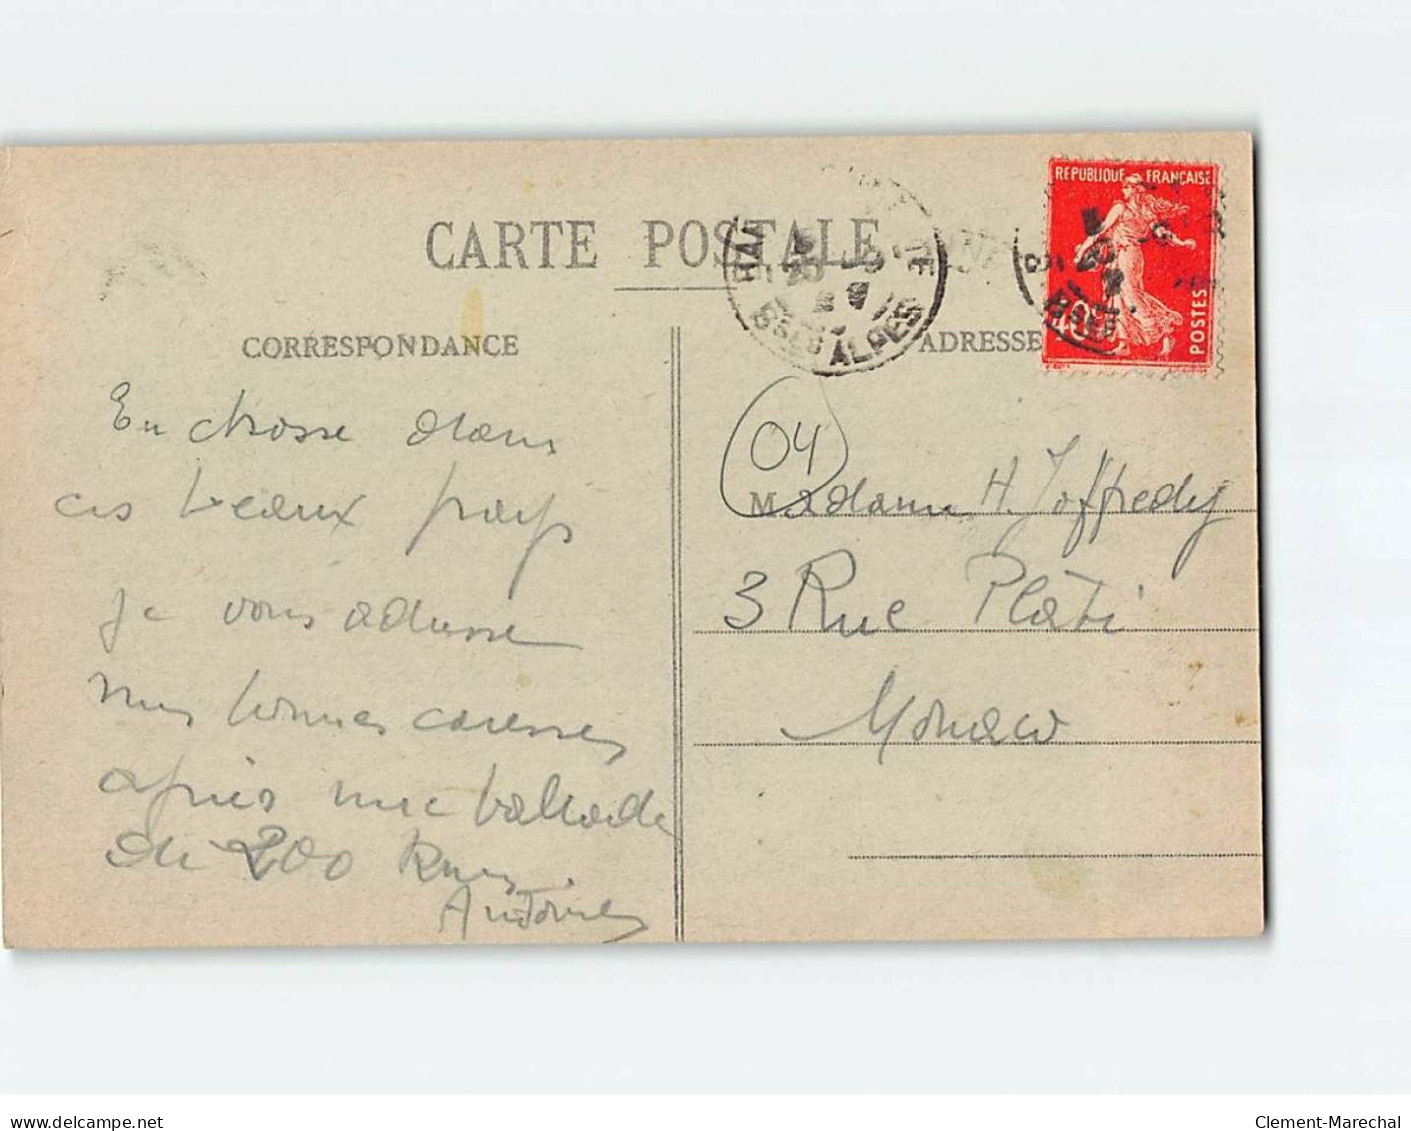 CARTE POSTALE
REPUBLIQUE FRANÇAISE
40
POSTES
BSES ALPES
CORRESPONDANCE
ADRESSE
En chasse dans
ces beaux pays
je vous adresse
mes bonnes caresses
après une ballade
de 200 Kms.
Antoine
04
Madame H. Joffredy
3 Rue Plati
Monaco
www.delcampe.net
Clement-Marechal